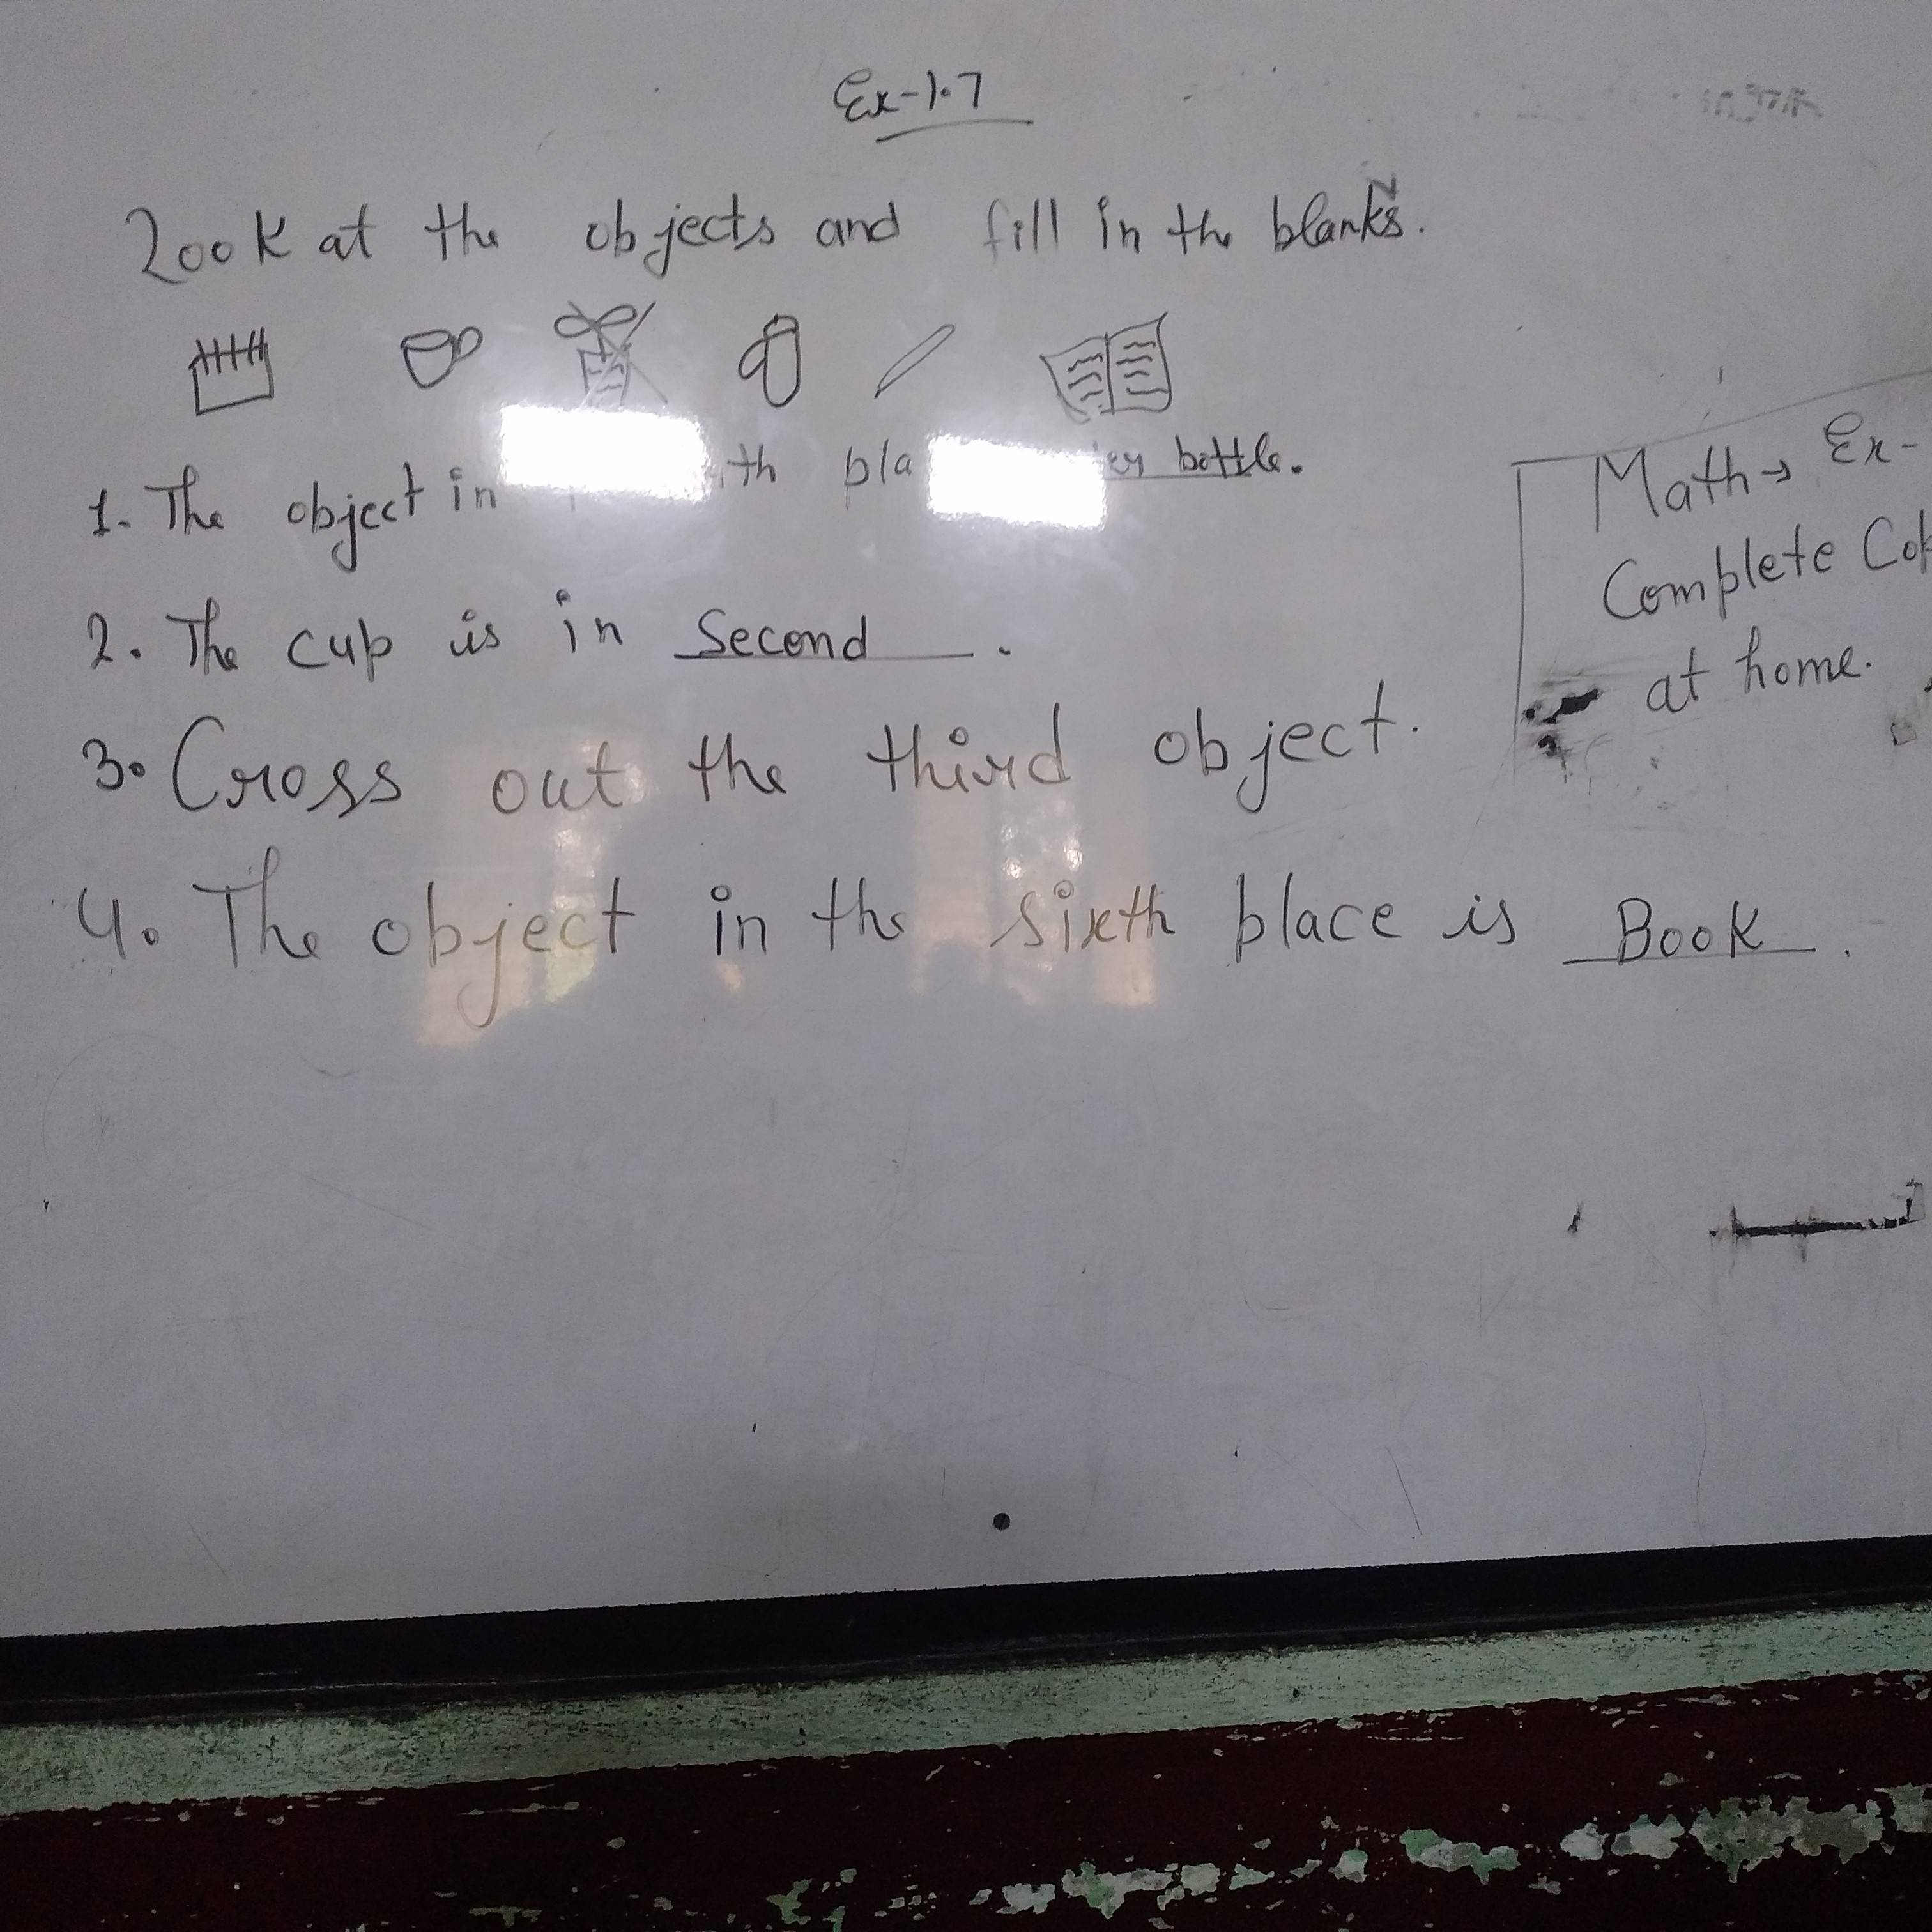 Ex-1.7
Look at the objects and fill in the blanks.
1. The object in th pla er bottle.
2. The cup is in Second.
3. Cross out the third object.
4. The object in the sixth place is Book.
Math → Ex-
Complete Co
at home.